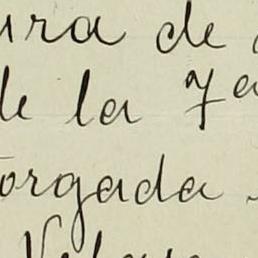 ura de
de la 7a
orgada